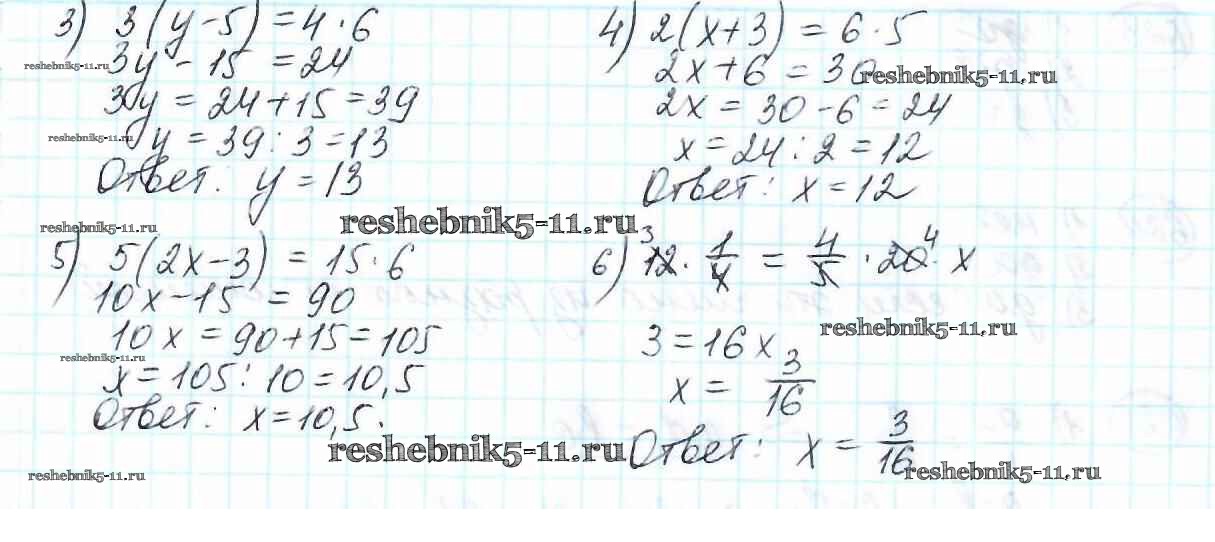 3) 3(y-5) = 4·6
3y - 15 = 24
3y = 24+15 = 39
y = 39 : 3 = 13
Ответ: y = 13
4) 2(x+3) = 6·5
2x+6 = 30
2x = 30-6 = 24
x = 24 : 2 = 12
Ответ: x = 12
reshebnik5-11.ru
reshebnik5-11.ru
reshebnik5-11.ru
reshebnik5-11.ru
reshebnik5-11.ru
5) 5(2x-3) = 15·6
10x-15 = 90
10x = 90+15 = 105
x = 105 : 10 = 10,5
Ответ: x = 10,5.
6) 3 12 · 1/4 = 4/5 · 20 4 · x
3 = 16x
x = 3/16
Ответ: x = 3/16
reshebnik5-11.ru
reshebnik5-11.ru
reshebnik5-11.ru
reshebnik5-11.ru
reshebnik5-11.ru